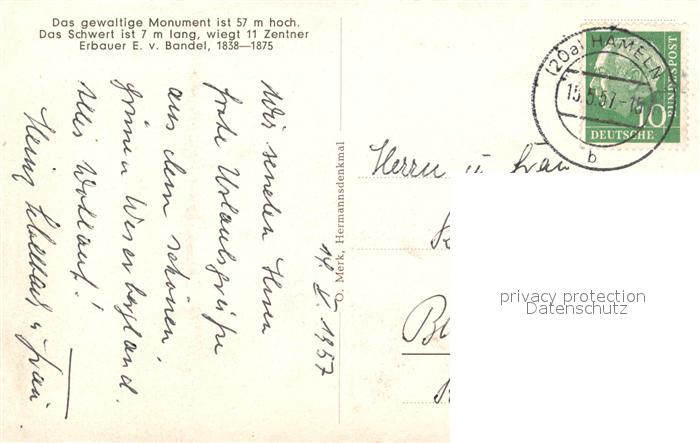 Das gewaltige Monument ist 57 m hoch.
Das Schwert ist 7 m lang, wiegt 11 Zentner
Erbauer E. v. Bandel, 1838—1875
Wir senden Ihnen
frohe Urlaubsgrüße
aus dem schönen,
grünen Weserbergland.
Alles Wohlauf!
Heinz u. Frau
14. V. 1957
O. Merk, Hermannsdenkmal
Herrn u Frau
(20a) HAMELN
15.5.57-15
b
10
BUNDESPOST
DEUTSCHE
privacy protection
Datenschutz